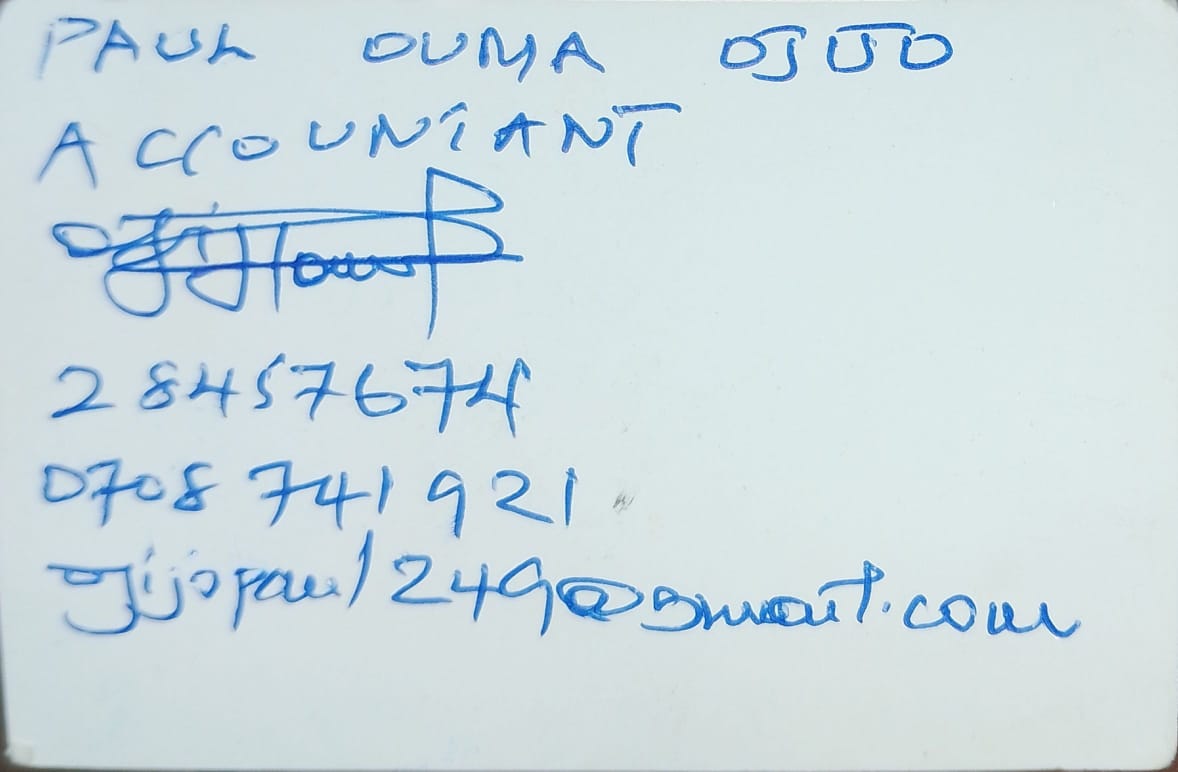 PAUL OUMA OJIJO
ACCOUNTANT
28457674
0708 741 921
ojijopaul249@gmail.com